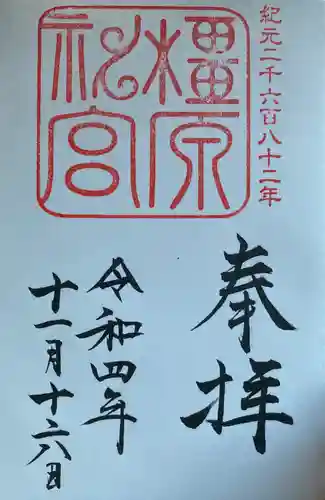 紀元二千六百八十二年
橿原神宮
奉拝
令和四年
十一月十六日